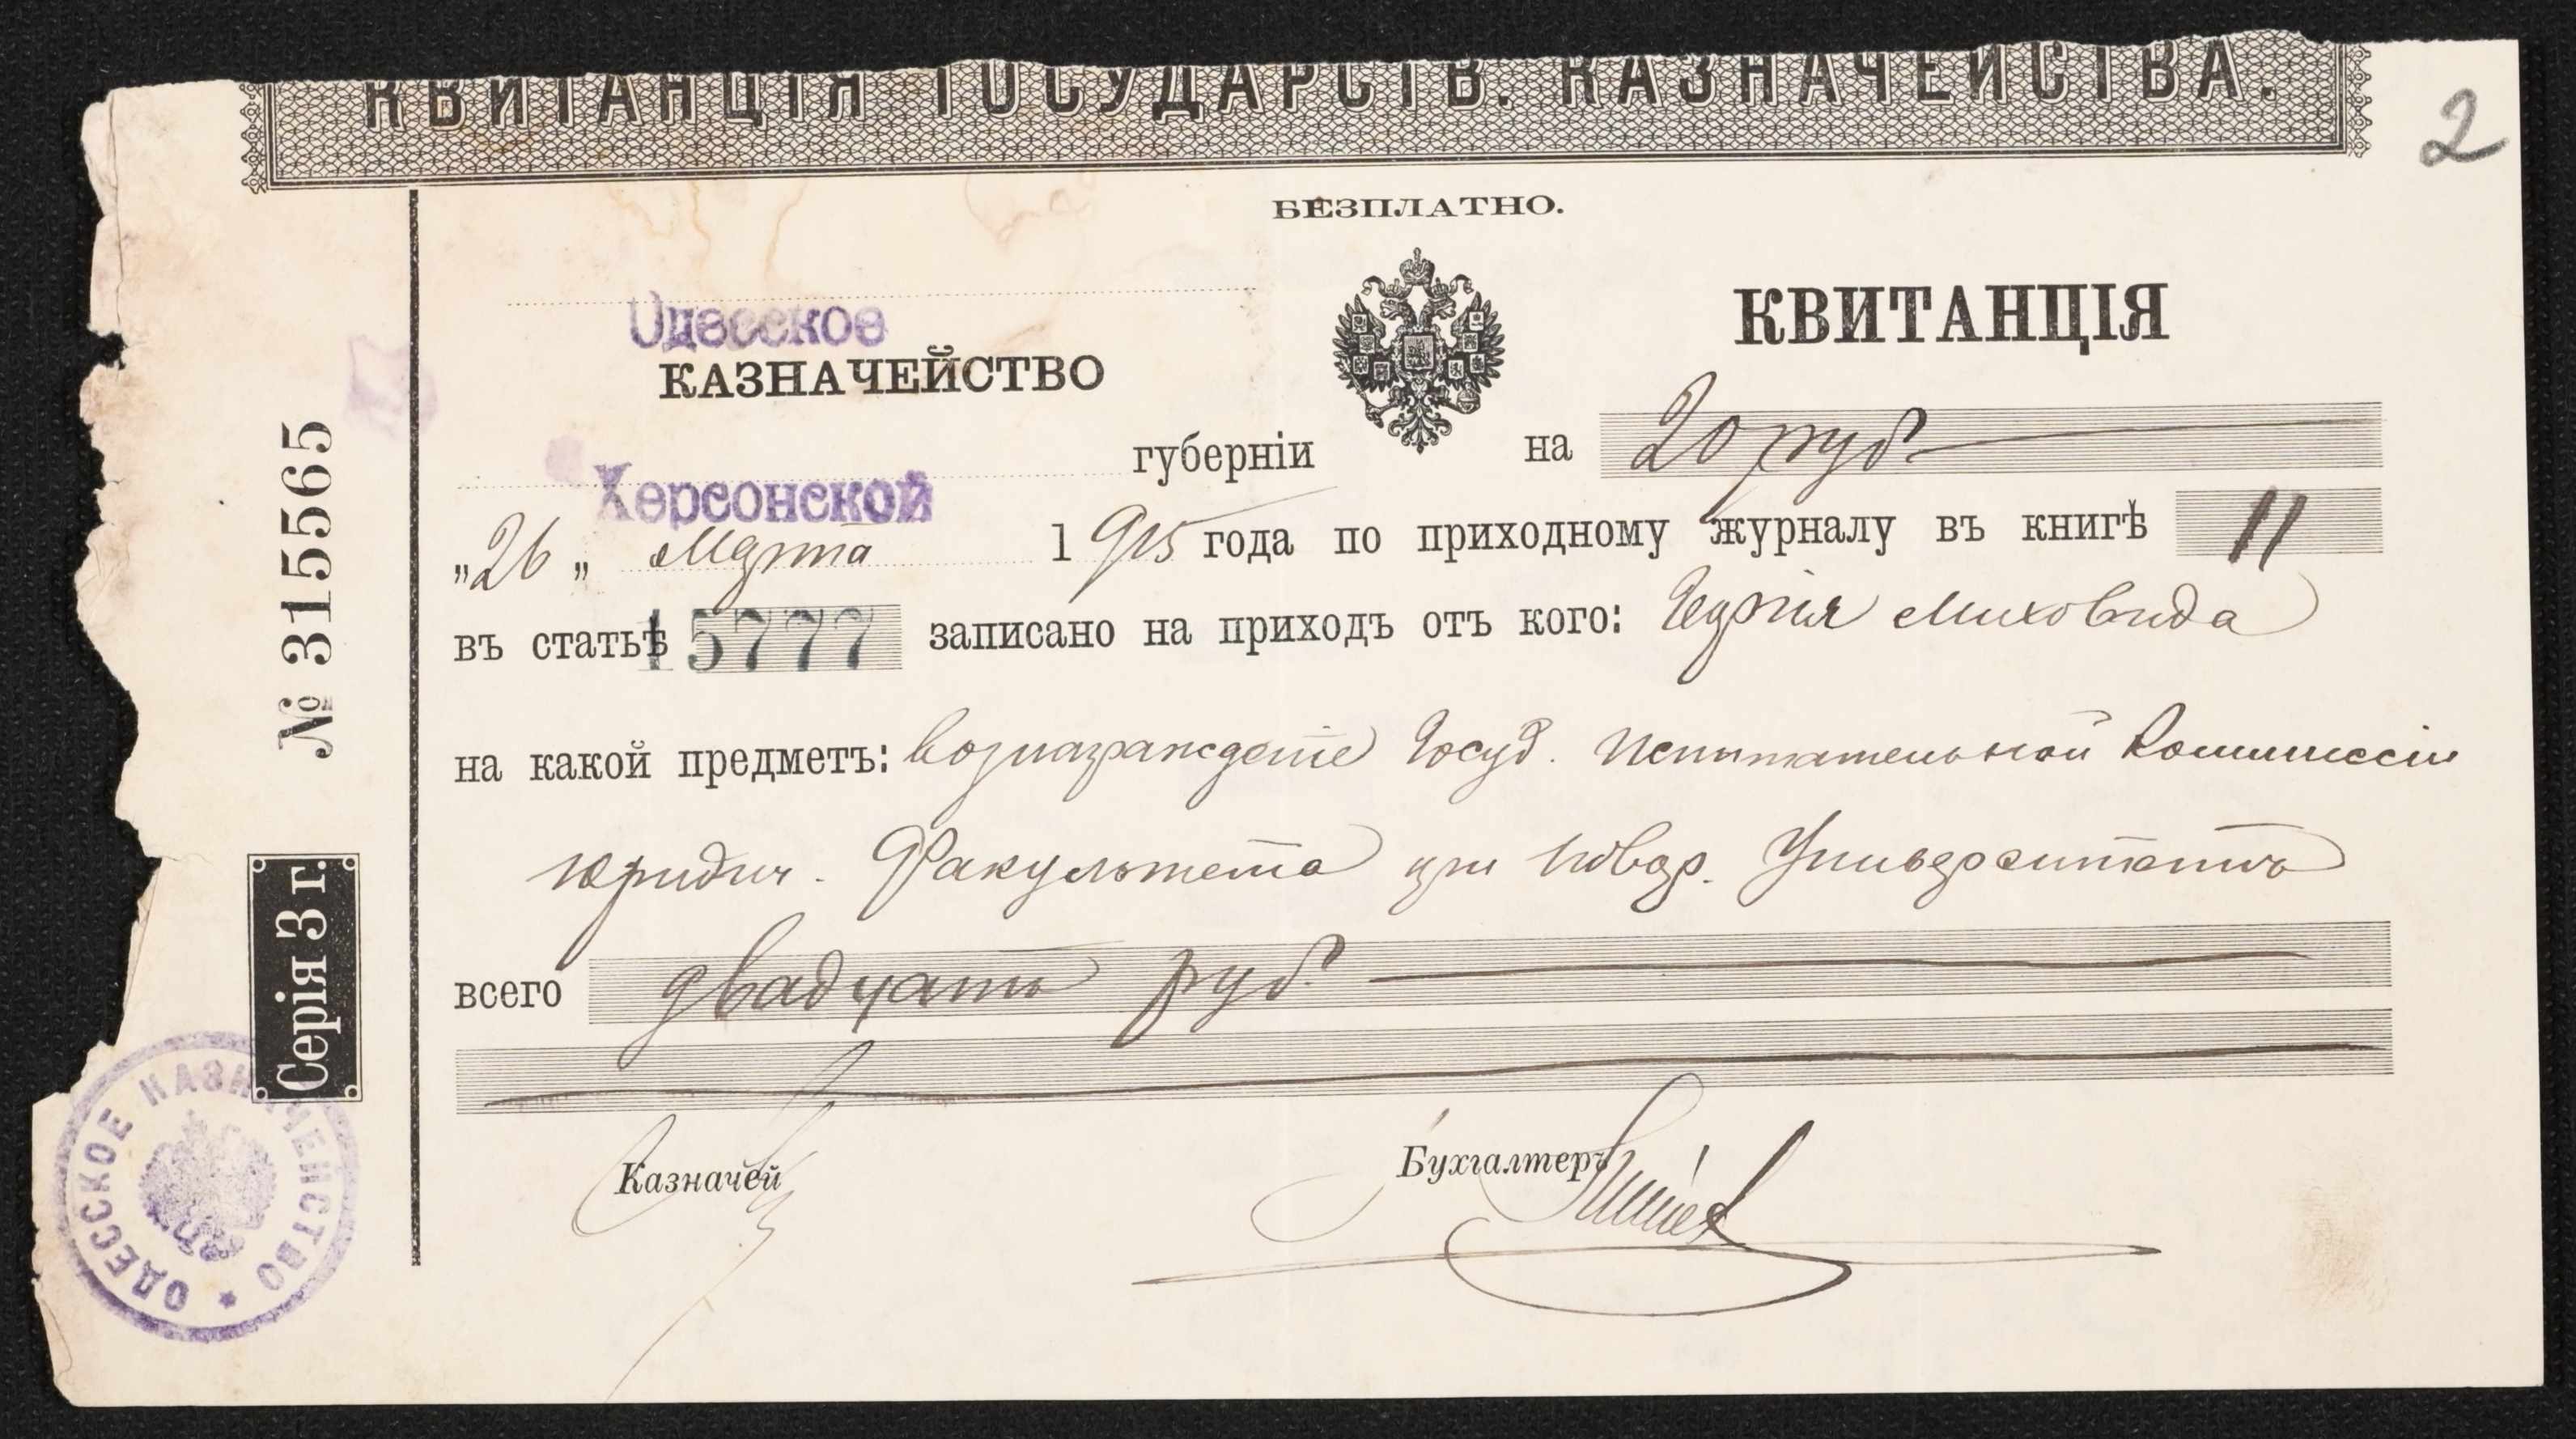 КВИТАНЦІЯ ГОСУДАРСТВ. КАЗНАЧЕЙСТВА.
2
БЕЗПЛАТНО.
Одесское
КАЗНАЧЕЙСТВО
КВИТАНЦІЯ
губерніи на 20 руб
Херсонской
„26„ Марта 1915 года по приходному журналу въ книгѣ 11
въ статьѣ 15777 записано на приходъ отъ кого:
на какой предметъ: вознагражденіе Госуд. Испытательной Коммиссіи
юридич. Факультета при Новор. Университетѣ
всего двадцать руб.
Казначей
Бухгалтеръ
№ 315565
Серія 3 г.
ОДЕССКОЕ КАЗНАЧЕЙСТВО